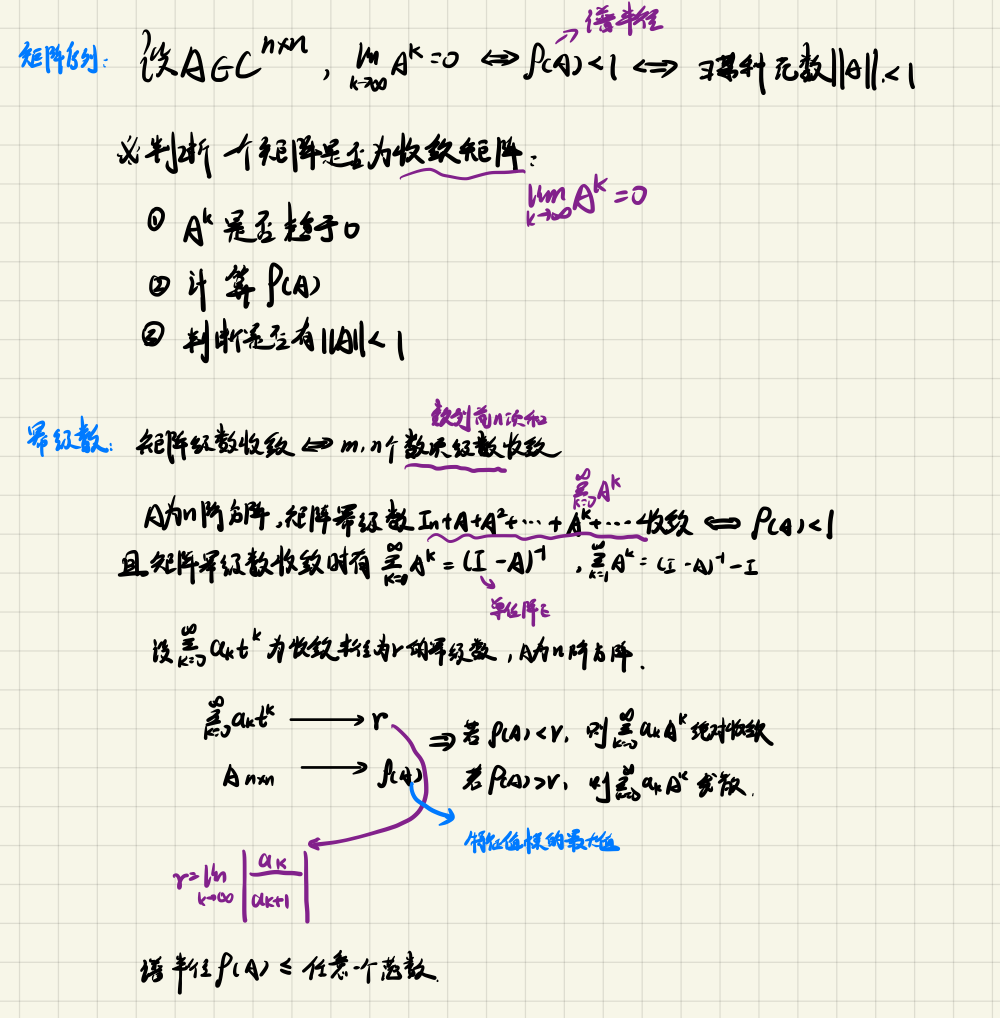 谱半径
矩阵序列: 设A∈C^{n×n}, lim_{k→∞} A^k=0 ⇔ ρ(A)<1 ⇔ ∃某种范数||A||<1
※判断一个矩阵是否为收敛矩阵:
lim_{k→∞} A^k=0
① A^k是否趋于0
② 计算ρ(A)
③ 判断是否有||A||<1
数列前n项和
幂级数: 矩阵级数收敛 ⇔ m,n个数项级数收敛
∑_{k=0}^{∞} A^k
A为n阶方阵,矩阵幂级数 I_n+A+A²+⋯+A^k+⋯收敛 ⇔ ρ(A)<1
且矩阵幂级数收敛时有 ∑_{k=0}^{∞} A^k=(I-A)^{-1}, ∑_{k=1}^{∞} A^k=(I-A)^{-1}-I
单位阵E
设∑_{k=0}^{∞} a_k t^k为收敛半径为r的幂级数,A为n阶方阵.
∑_{k=0}^{∞} a_k t^k → r ⇒ 若ρ(A)<r, 则∑_{k=0}^{∞} a_k A^k 绝对收敛
A_{n×n} → ρ(A) 若ρ(A)>r, 则∑_{k=0}^{∞} a_k A^k 发散.
特征值模的最大值
r=lim_{k→∞} |a_k/a_{k+1}|
谱半径ρ(A)≤任意一个范数.